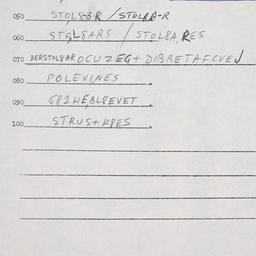 050 STOL8-3-R / STOL8A-R
060 STOL8ARS / STOL8A,RES
070 DERSTOL8AROCUZEG+DIBRETAFCVEJ
080 POLEVI,NES.
090 G81HE,BL8EVET.
100 STRUS+K8ES.